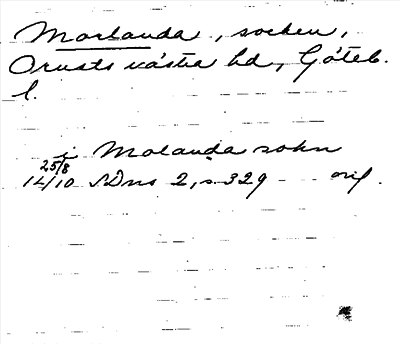 Morlanda, socken,
Orusts västra hd, Göteb.
l.
i Molanda sokn
25/8
1410 SDns 2, s. 329 orig.